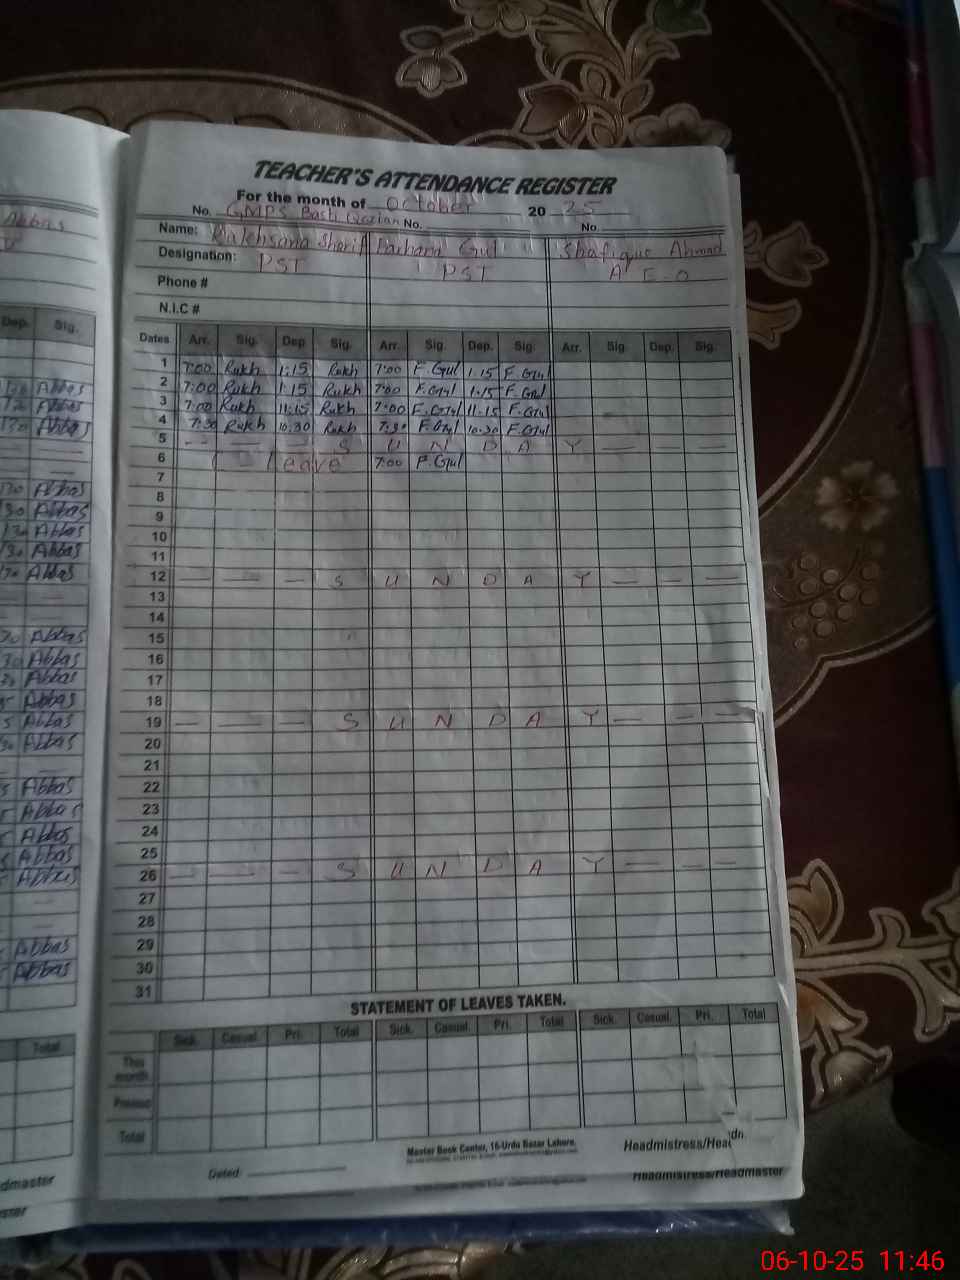 TEACHER'S ATTENDANCE REGISTER
For the month of October 20 25
No. GMPS Basti Qazian No. No.
Name: Rukhsana Sherif Farhana Gul Shafique Ahmad
Designation: PST PST A E-O
Phone #
N.I.C #
Dep. Sig. Dates Arr. Sig. Dep. Sig. Arr. Sig. Dep. Sig. Arr. Sig. Dep. Sig.
1 7:00 Rukh 1:15 Rukh 7:00 F.Gul 1:15 F.Gul
Abbas 2 7:00 Rukh 1:15 Rukh 7:00 F.Gul 1:15 F.Gul
Abbas 3 7:00 Rukh 11:15 Rukh 7:00 F.Gul 11:15 F.Gul
Abbas 4 7:30 Rukh 10:30 Rukh 7:30 F.Gul 10:30 F.Gul
5 — — — S U N D A Y — — —
6 Leave 7:00 F.Gul
7
Abbas 8
Abbas 9
Abbas 10
Abbas 11
Abbas 12 — — — S U N D A Y — — —
13
14
Abbas 15
Abbas 16
Abbas 17
Abbas 18
Abbas 19 — — — S U N D A Y — — —
Abbas 20
21
Abbas 22
Abbas 23
Abbas 24
Abbas 25
Abbas 26 — — — S U N D A Y — — —
27
28
Abbas 29
Abbas 30
31
STATEMENT OF LEAVES TAKEN.
Total Sick. Casual. Pri. Total Sick. Casual. Pri. Total Sick. Casual. Pri. Total
This month
Previous
Total
Master Book Center, 16-Urdu Bazar Lahore.
Headmistress/Head
Dated:
Headmistress/Headmaster
06-10-25 11:46